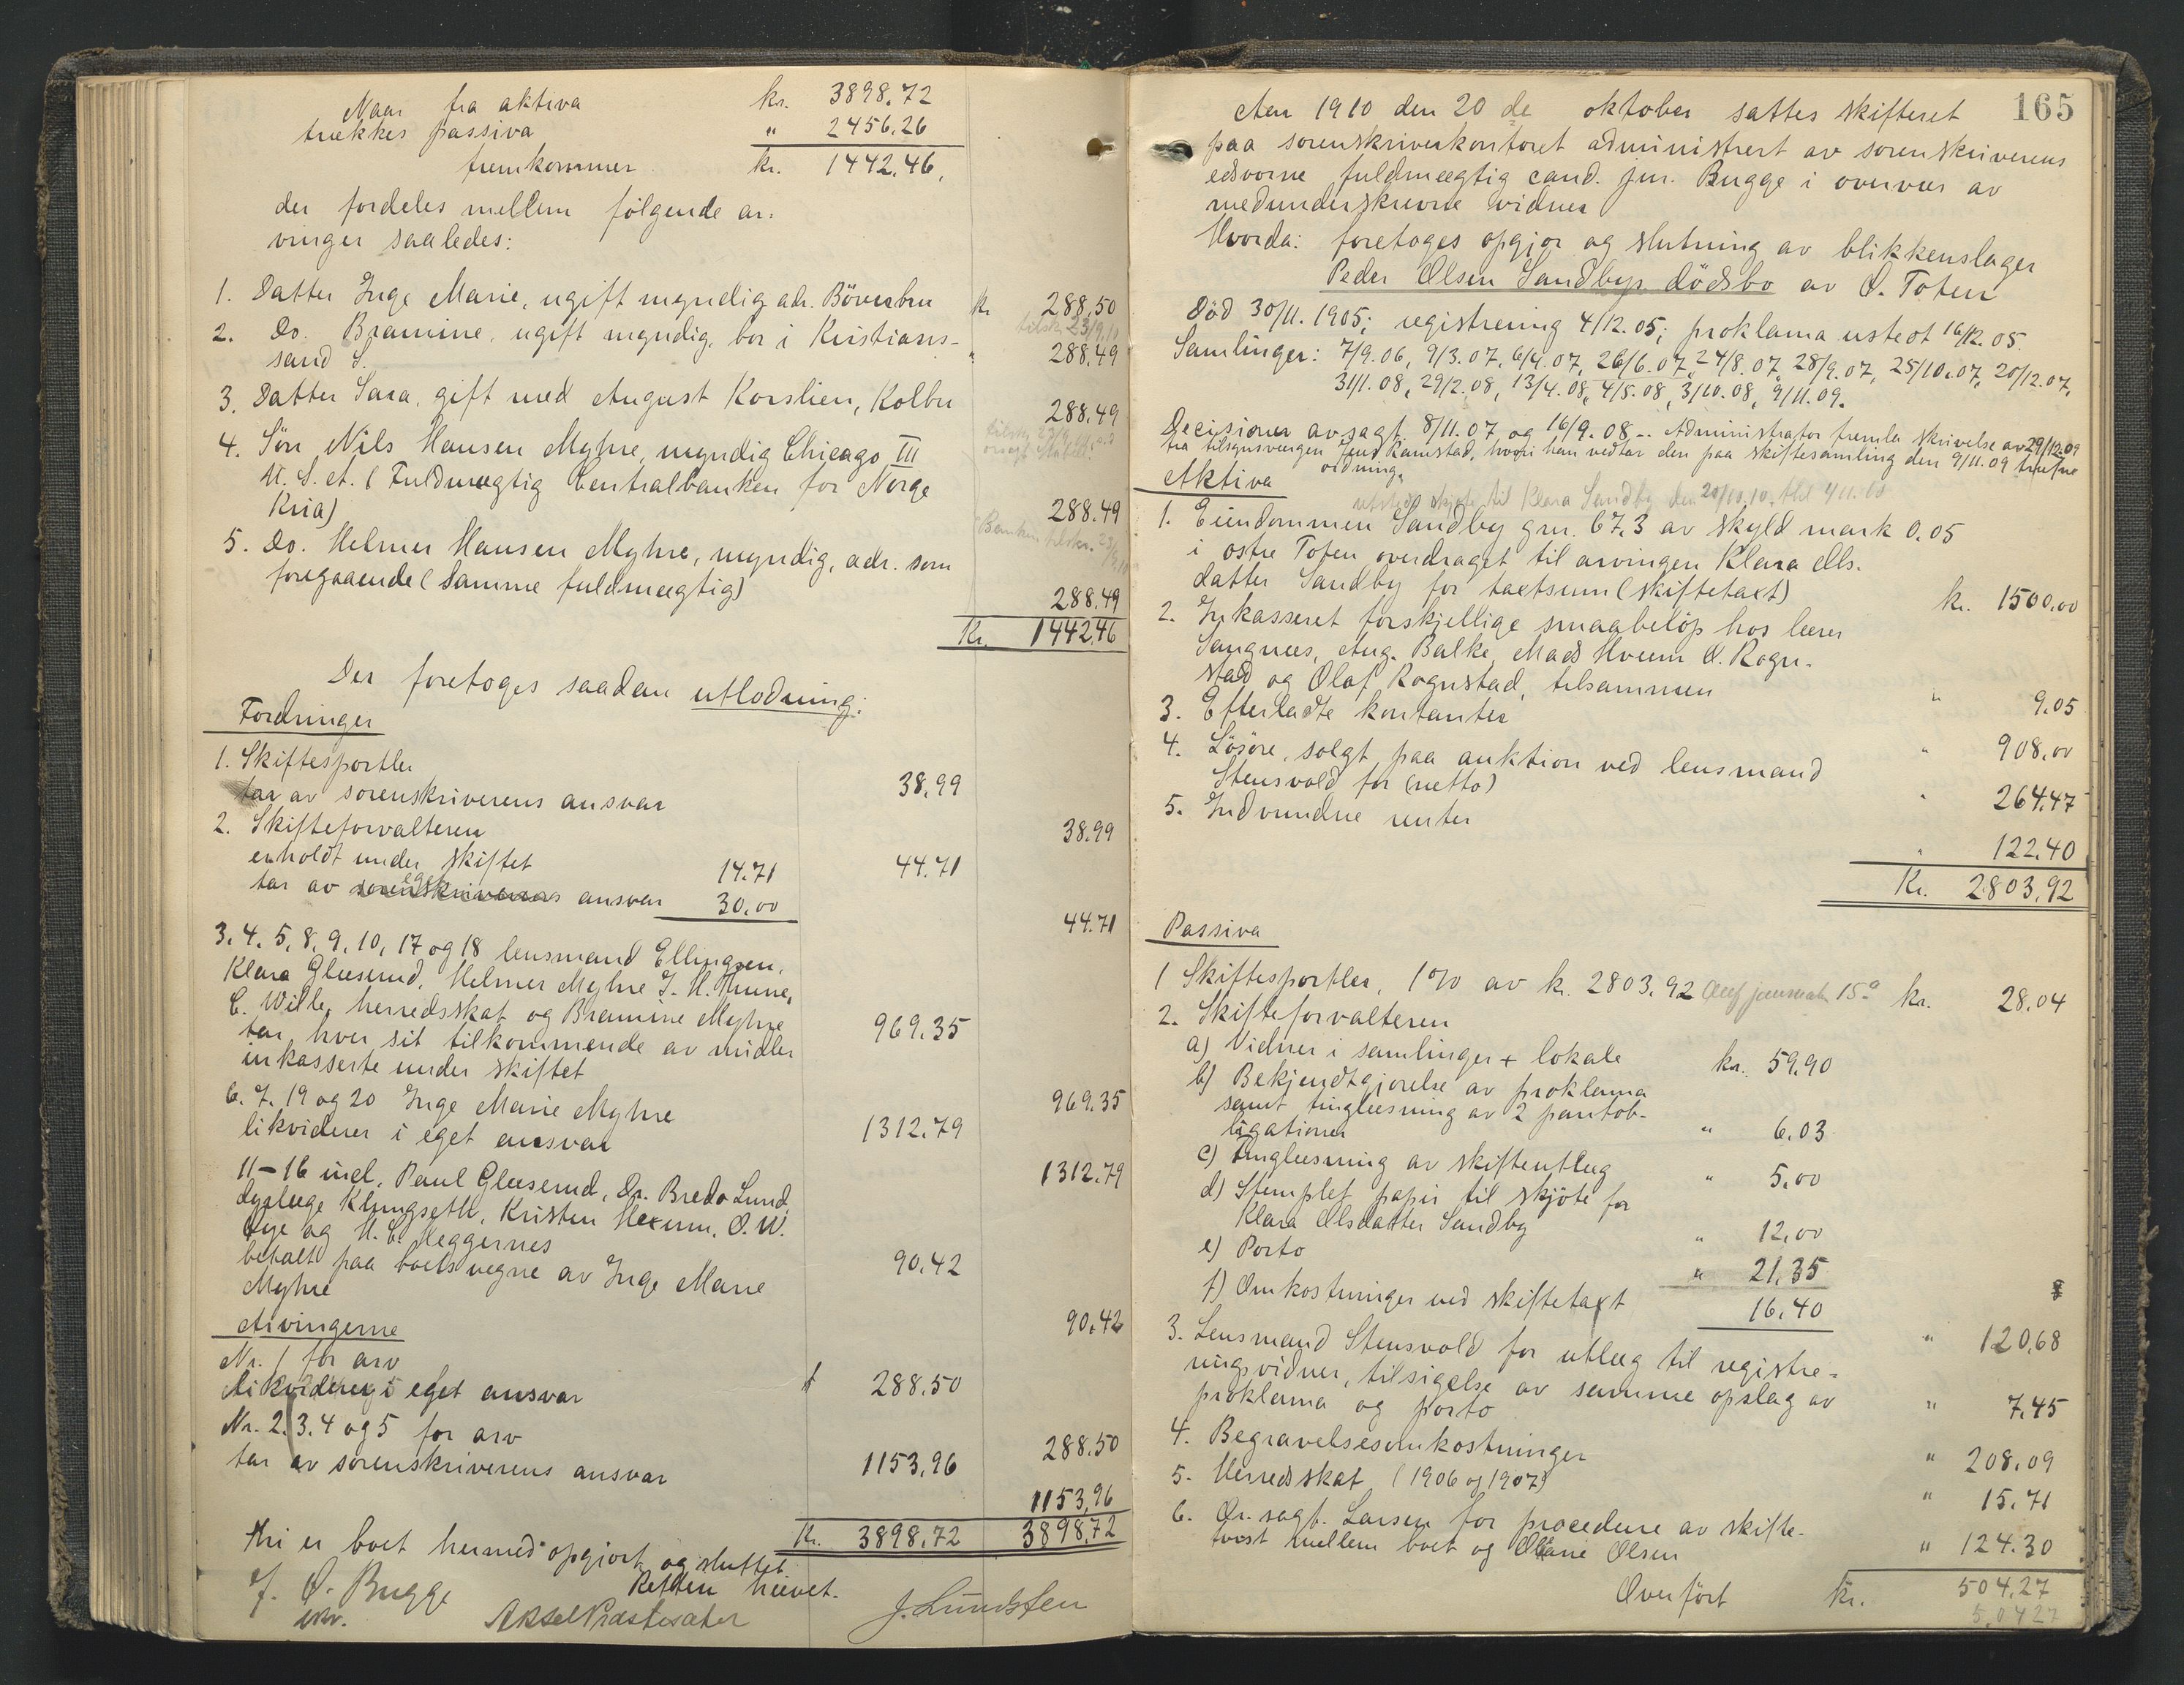 Naar fra aktiva kr. 3898.72
trækkes passiva " 2456.26
fremkommer kr. 1442.46,
der fordeles mellem følgende ar-
vinger saaledes:
1. Datter Inge Marie, ugift myndig adr. Böverbru kr 288.50
2. Do. Bramine, ugift myndig, bor i Kristians-
sand S. " 288.49
3. Datter Sara, gift med August Korslien, Kolbu 288.49
4. Sön Nils Hansen Myhre, myndig Chicago Ill
U. S. A. (Fuldmægtig Centralbanken for Norge
Kria) 288.49
5. Do. Helmer Hansen Myhre, myndig, adr. som
foregaaende (Samme fuldmægtig) 288.49
Kr. 1442.46
Der foretoges saadan utlodning:
Fordringer
1. Skiftesportler 38.99
tar av sorenskriverens ansvar 38.99
2. Skifteforvalteren 44.71
erholdt under skiftet 14.71
tar av eget ansvar 30.00 44.71
3. 4. 5, 8, 9, 10, 17 og 18 lensmand Ellingsen,
Klara Glæserud, Helmer Myhre J. H. Thune,
C. Wille, herredsskat og Bramine Myhre 969.35
tar hver sit tilkommende av midler
inkasserte under skiftet 969.35
6. 7. 19 og 20 Inge Marie Myhre 1312.79
likviderer i eget ansvar 1312.79
11-16 incl. Paul Glæserud, Dr. Bredo Lund,
dyrlæge Klungseth, Kristen Hexum, O. W.
Lye og H. C. Heggernes 90.42
betalt paa boets vegne av Inge Marie
Myhre 90.42
Arvingerne
Nr. 1 for arv 288.50
likviderer i eget ansvar 288.50
Nr. 2, 3, 4 og 5 for arv 1153.96
tar av sorenskriverens ansvar 1153.96
Kr. 3898.72 3898.72
Thi er boet hermed opgjort og sluttet.
Retten hævet.
O. Bugge
Aksel Præstesæter J. Lundsten
165
Aar 1910 den 20 de oktober sattes skifteret
paa sorenskriverkontoret administrert av sorenskriverens
edsvorne fuldmægtig cand. jur. Bugge i overvær av
medunderskrevne vidner
Hvorda: foretoges opgjør og slutning av blikkenslager
Peder Olsen Sandbys dödsbo av Ø. Toten
Död 30/11. 1905; registrering 4/12. 05; proklama utstedt 16/12. 05.
Samlinger: 7/9. 06, 9/3. 07, 6/4. 07, 26/6. 07, 27/8. 07, 28/9. 07, 25/10. 07, 20/12. 07,
31/1. 08, 29/2. 08, 13/4. 08, 4/5. 08, 3/10. 08, 9/11. 09.
Decisioner avsagt 8/11. 07 og 16/9. 08 -. Administrator fremla skrivelse av 29/12. 09
fra tilsynsvergen Jens Ramstad, hvori han vedtar den paa skiftesamling den 9/11. 09 trufne
ordning.
Aktiva
utstedt skjøte til Klara Sandby den 20/10. 10.
1. Eiendommen Sandby gnr. 67.3 av skyld mark 0.05
i østre Toten overdraget til arvingen Klara Ols-
datter Sandby for taxtsum (skiftetaxt) kr. 1500.00
2. Inkasseret forskjellige smaabeløp hos lærer
Sangnæs, Aug. Balke, Mads Hveem O. Rogn-
stad og Olaf Rognstad, tilsammen " 9.05
3. Efterladte kontanter " 908.00
4. Lösöre, solgt paa auktion ved lensmand
Stensvold for (netto) " 264.47
5. Indvundne renter " 122.40
Kr. 2803.92
Passiva
1 Skiftesportler, 1% av kr. 2803.92 kr. 28.04
2. Skifteforvalteren
a) Vidner i samlinger + lokale kr. 59.90
b) Bekjendtgjørelse av proklama
samt tinglæsning av 2 pantob-
ligationer " 6.03
c) Tinglæsning av skifteutlæg " 5.00
d) Stemplet papir til skjöte for
Klara Olsdatter Sandby " 12.00
e) Porto " 21.35
f) Omkostninger ved skiftetaxt 16.40
" 120.68
3. Lensmand Stensvold for utlæg til registre-
ringsvidner, tilsigelse av samme opslag av
proklama og porto " 7.45
4. Begravelsesomkostninger " 208.09
5. Herredsskat (1906 og 1907) " 15.71
6. Or. sagf. Larsen for procedure av skifte-
tvist mellem boet og Oliane Olsen " 124.30
Overført kr. 504.27
504.27